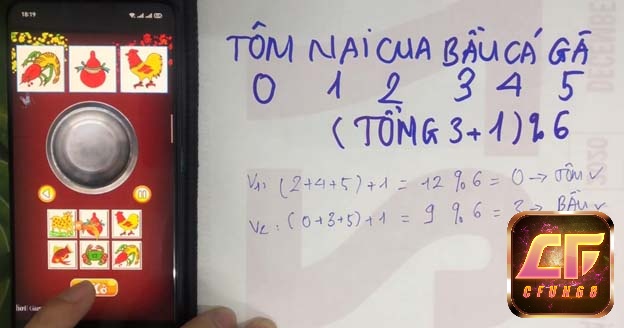 18:19
TÔM NAI CUA BẦU CÁ GÀ
0 1 2 3 4 5
(TỔNG 3+1)%6
V1: (2+4+5)+1 = 12 % 6 = 0 → TÔM ✓
V2: (0+3+5)+1 = 9 % 6 = 3 → BẦU ✓
DECEMBER
CF
CFUN68